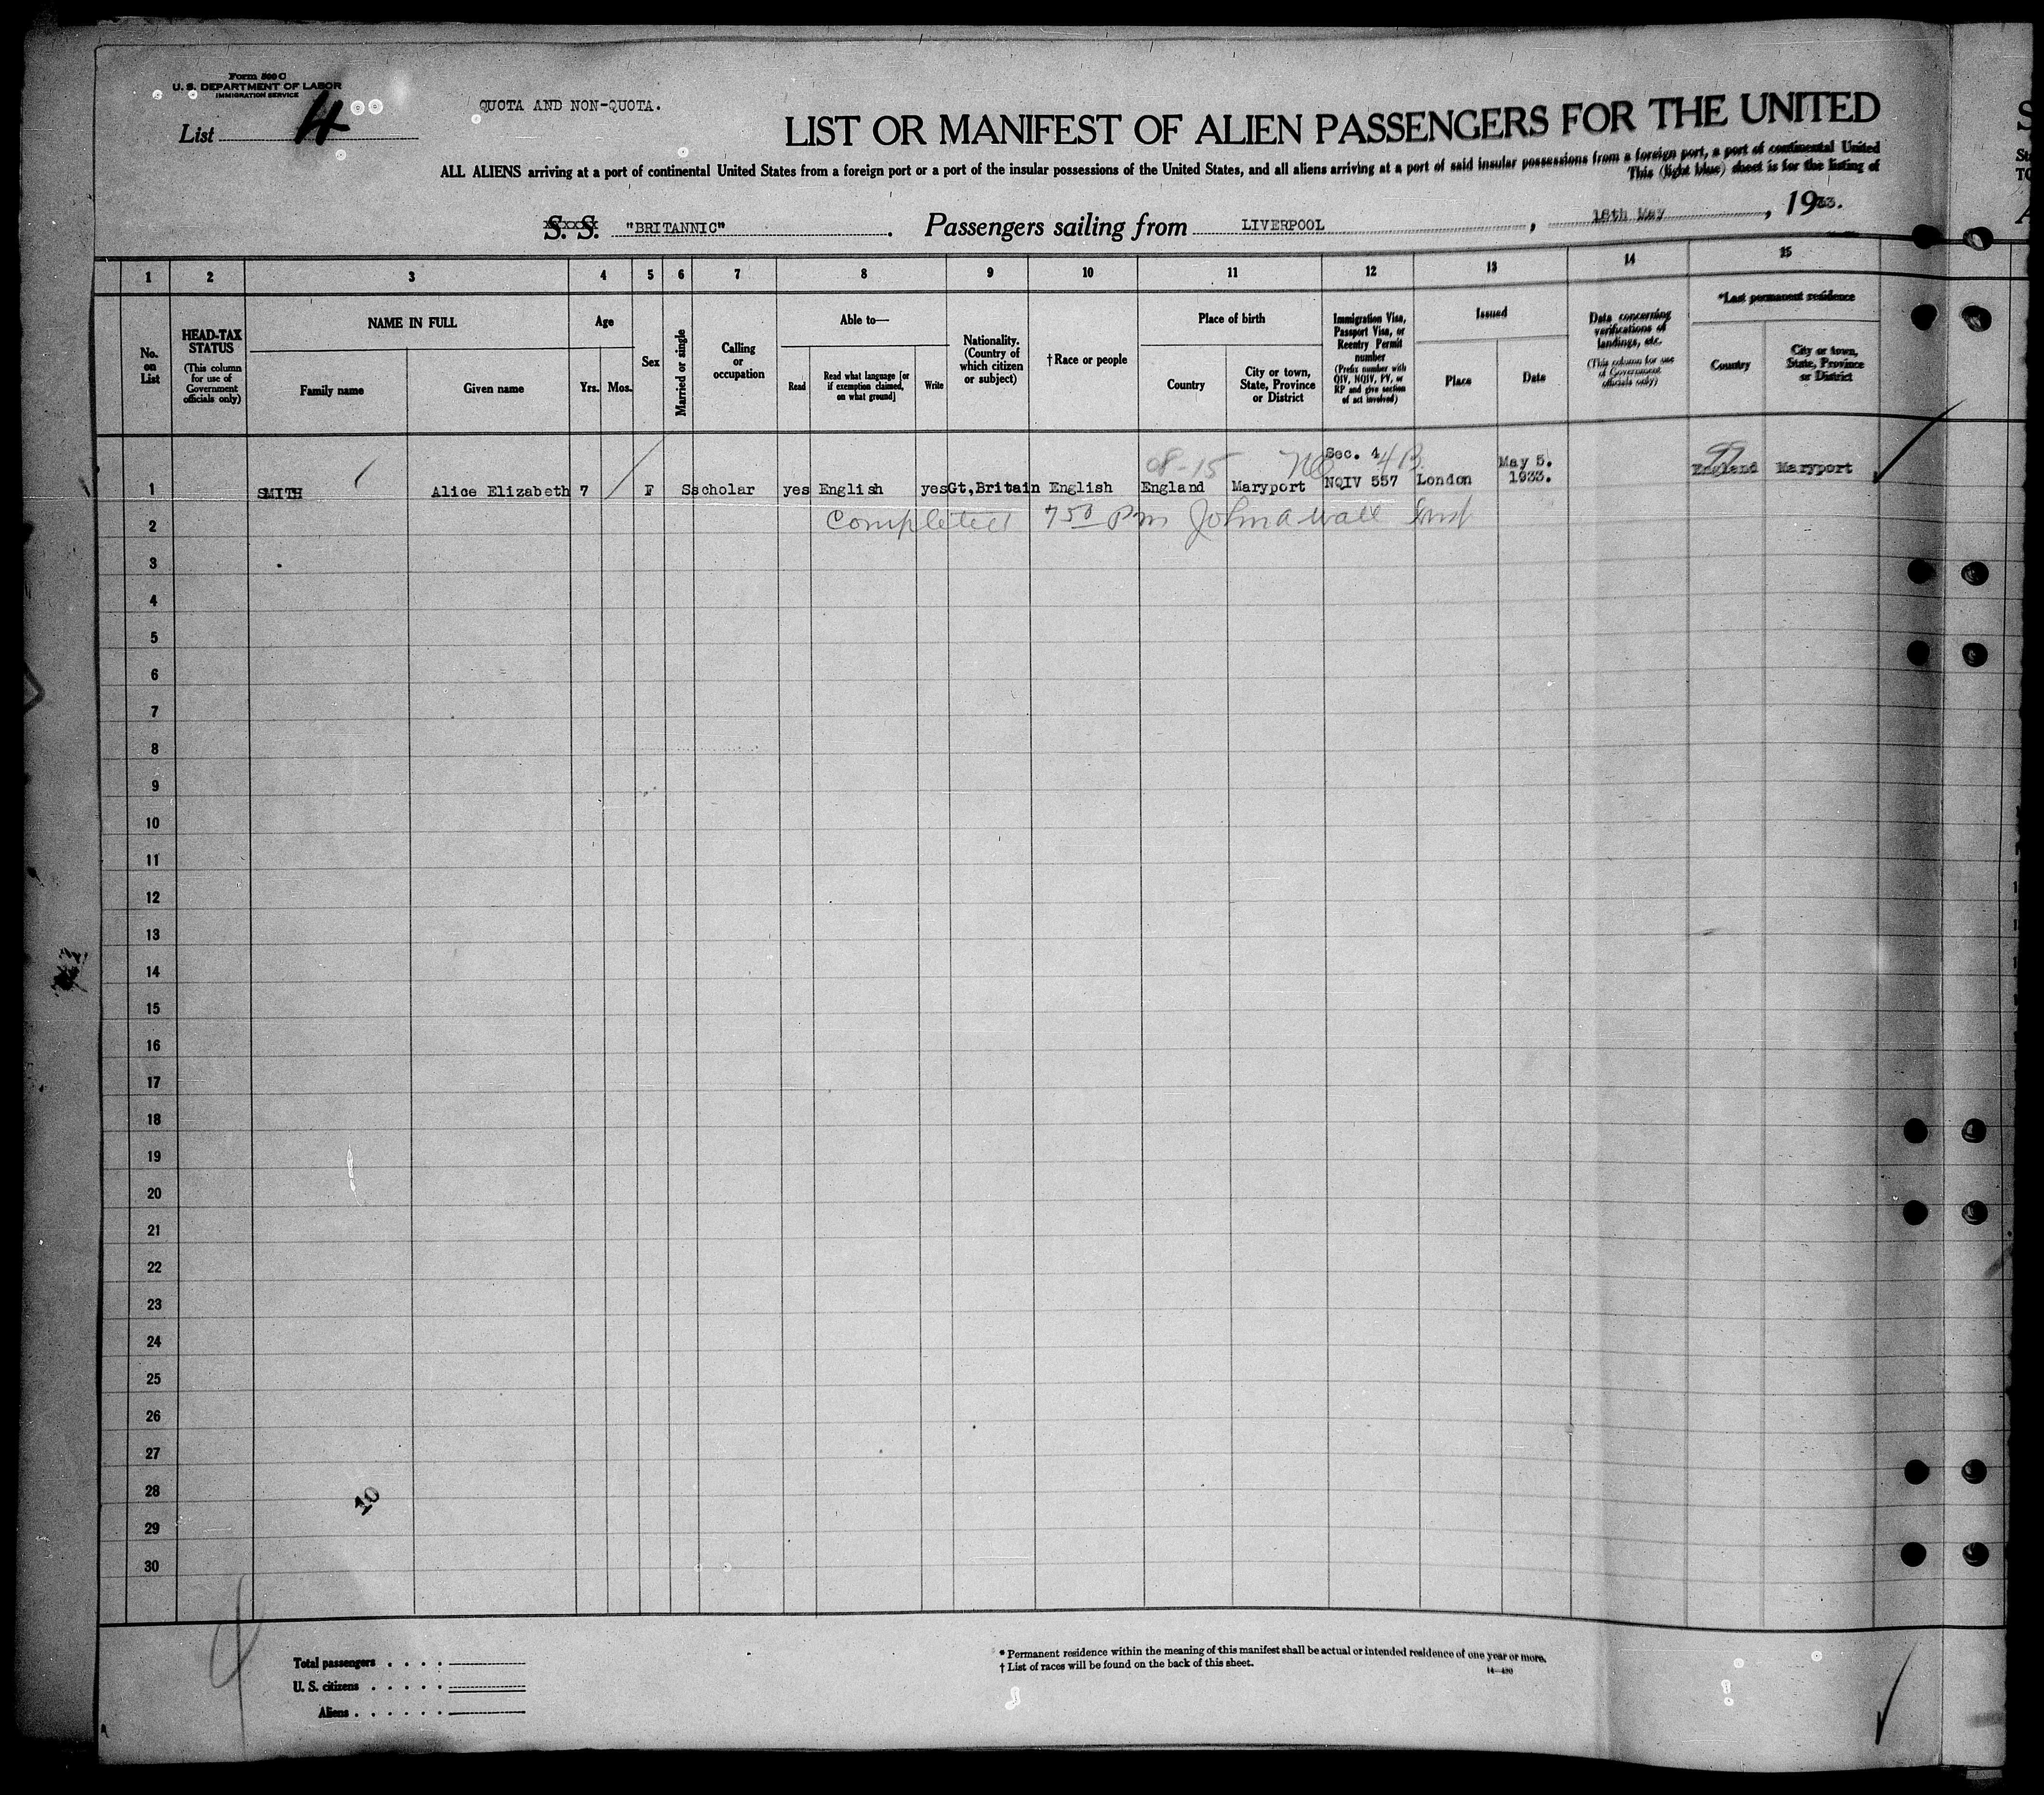 Form 500 C
U. S. DEPARTMENT OF LABOR
IMMIGRATION SERVICE
List 4
QUOTA AND NON-QUOTA.
LIST OR MANIFEST OF ALIEN PASSENGERS FOR THE UNITED
ALL ALIENS arriving at a port of continental United States from a foreign port or a port of the insular possessions of the United States, and all aliens arriving at a port of said insular possessions from a foreign port, a port of continental United
This (light blue) sheet is for the listing of
S. S. "BRITANNIC" . Passengers sailing from LIVERPOOL , May , 1933.
1 2 3 4 5 6 7 8 9 10 11 12 13 14 15
No. on List
HEAD-TAX STATUS
(This column for use of Government officials only)
NAME IN FULL
Family name
Given name
Age
Yrs.
Mos.
Sex
Married or single
Calling or occupation
Able to—
Read
Read what language [or if exemption claimed, on what ground]
Write
Nationality. (Country of which citizen or subject)
†Race or people
Place of birth
Country
City or town, State, Province or District
Immigration Visa, Passport Visa, or Reentry Permit number
(Prefix number with QIV, NQIV, PV, or RP and give section of act involved)
Issued
Place
Date
Data concerning verifications of landings, etc.
(This column for use of Government officials only)
*Last permanent residence
Country
City or town, State, Province or District
08-15 Sec. 4 4B. May 5.
1 SMITH Alice Elizabeth 7 F S scholar yes English yes Gt,Britain English England Maryport NQIV 557 London 1933. England Maryport
2 Completed 7 50 Pm John a Wall
3
4
5
6
7
8
9
10
11
12
13
14
15
16
17
18
19
20
21
22
23
24
25
26
27
28
29
30
10
Total passengers . . . .
U. S. citizens . . . . .
Aliens . . . . . .
* Permanent residence within the meaning of this manifest shall be actual or intended residence of one year or more.
† List of races will be found on the back of this sheet.
14—430